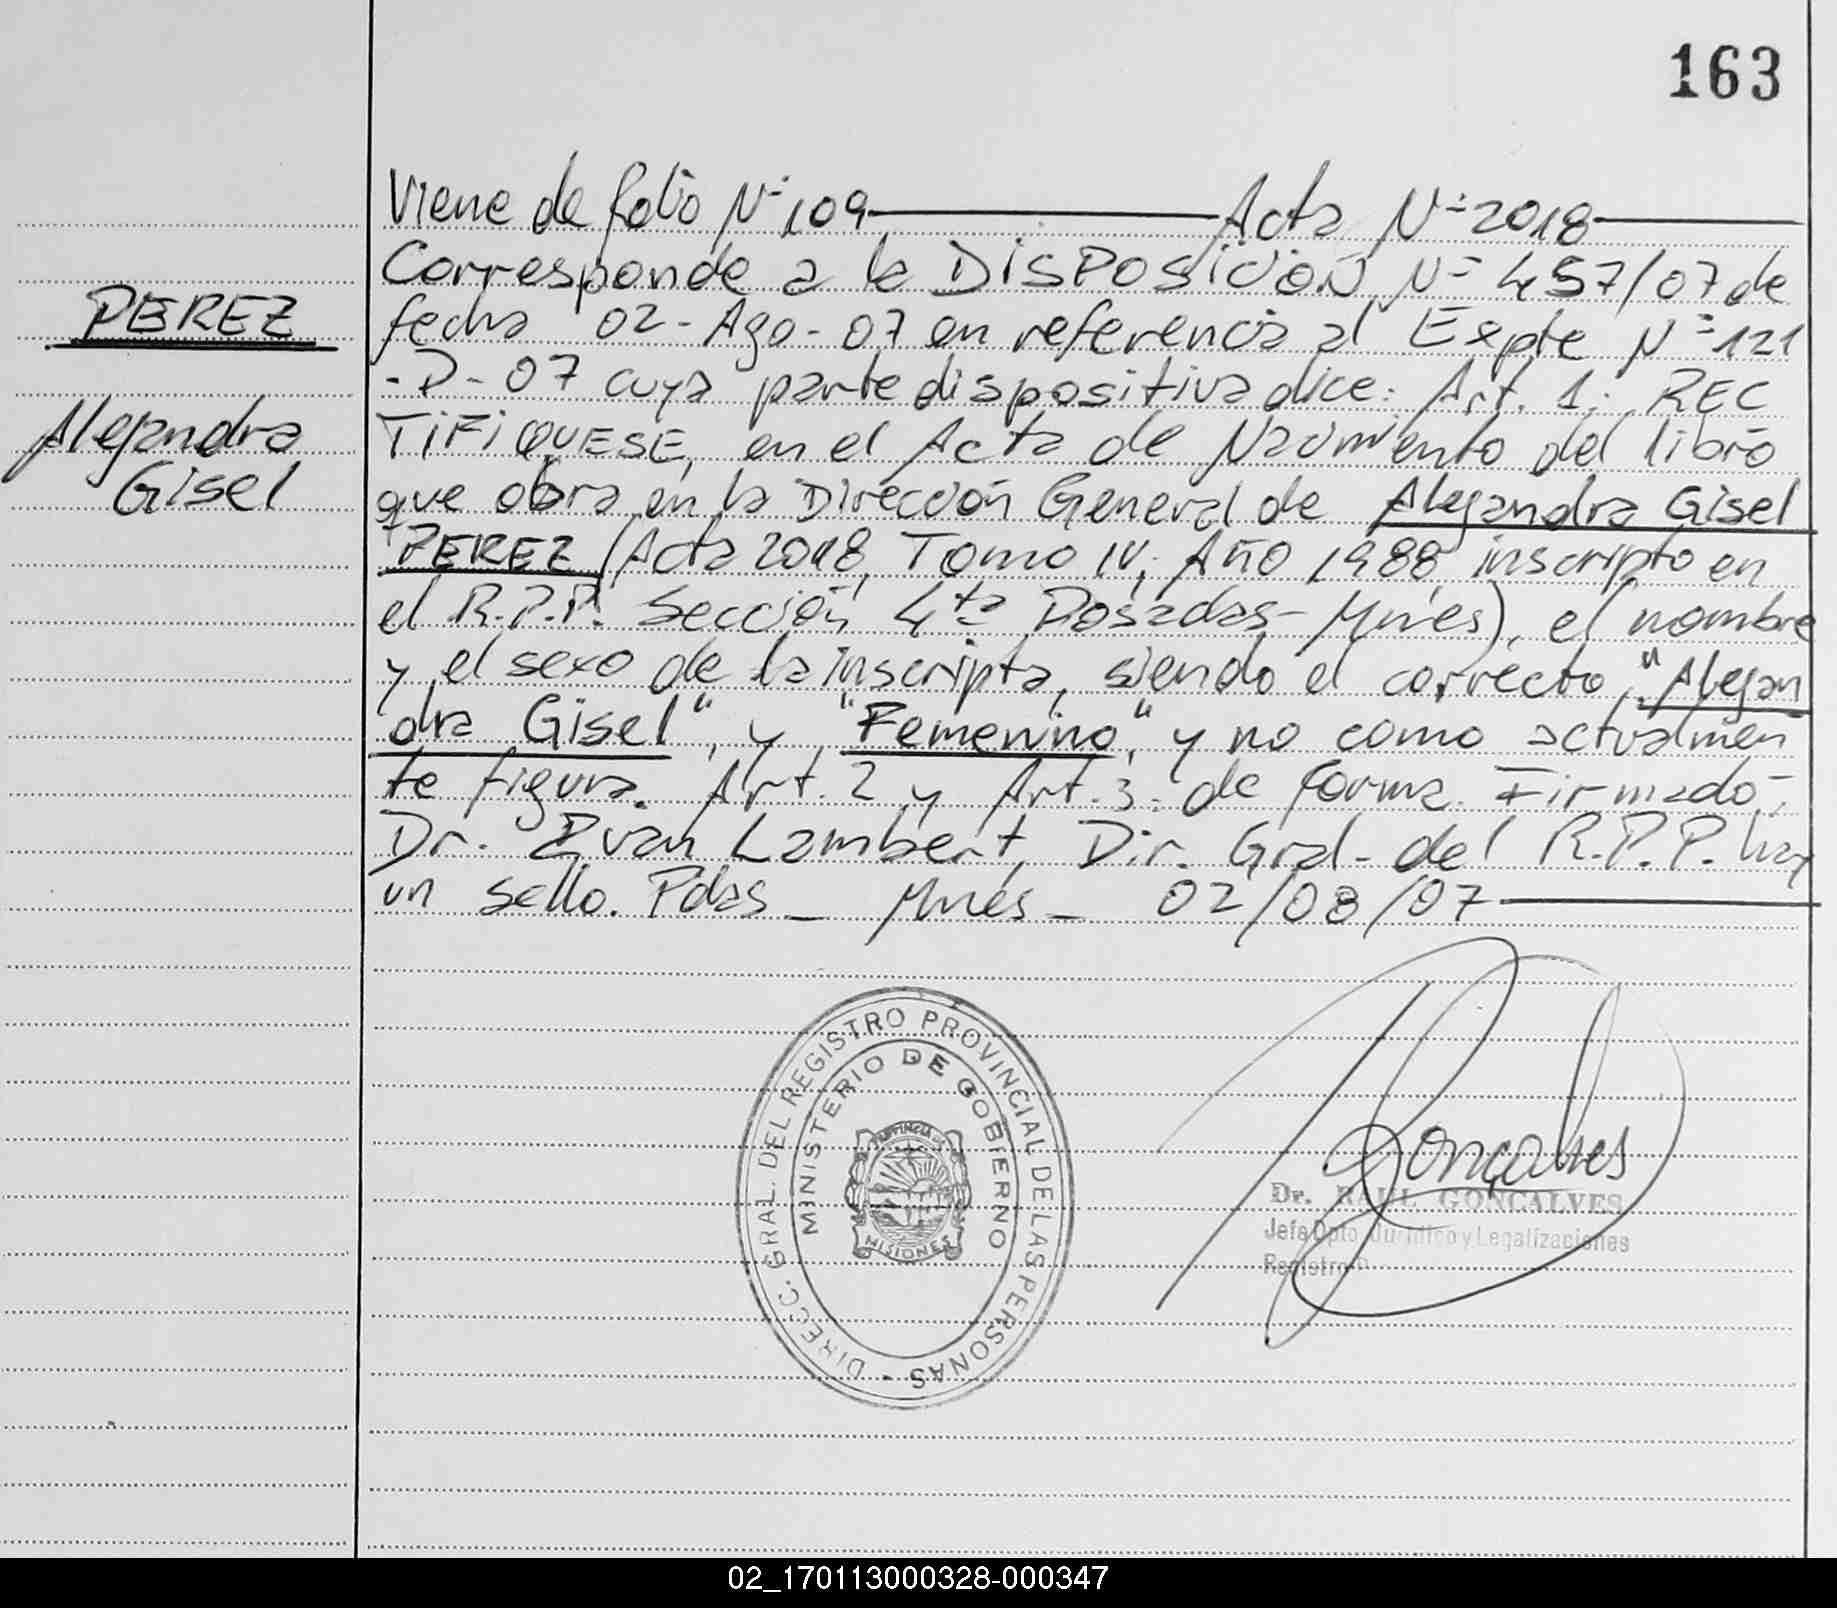 163
PEREZ
Alejandra
Gisel
Viene de folio Nº 109 Acta Nº 2018
Corresponde a la DISPOSICION Nº 457/07 de
fecha 02-Ago-07 en referencia al Expte Nº 121
-P-07 cuya parte dispositiva dice: Art. 1: REC
TIFIQUESE, en el Acta de Nacimiento del libro
que obra en la Dirección General de Alejandra Gisel
PEREZ (Acta 2018, Tomo IV, Año 1988 inscripto en
el R.P.P. Sección 4ta Posadas-Mnes), el nombre
y el sexo de la inscripta, siendo el correcto, "Alejan
dra Gisel", y, "Femenino", y no como actualmen
te figura. Art. 2 y Art. 3: de forma. Firmado:
Dr. Ivan Lambert, Dir. Gral. del R.P.P. hay
un sello. Pdas - Mnes - 02/08/07
DIRECC. GRAL. DEL REGISTRO PROVINCIAL DE LAS PERSONAS -
MINISTERIO DE GOBIERNO
PROVINCIA DE
MISIONES
Gonçalves
Dr. RAUL GONCALVES
Jefe Dpto. Jurídico y Legalizaciones
Registro P
02_170113000328-000347